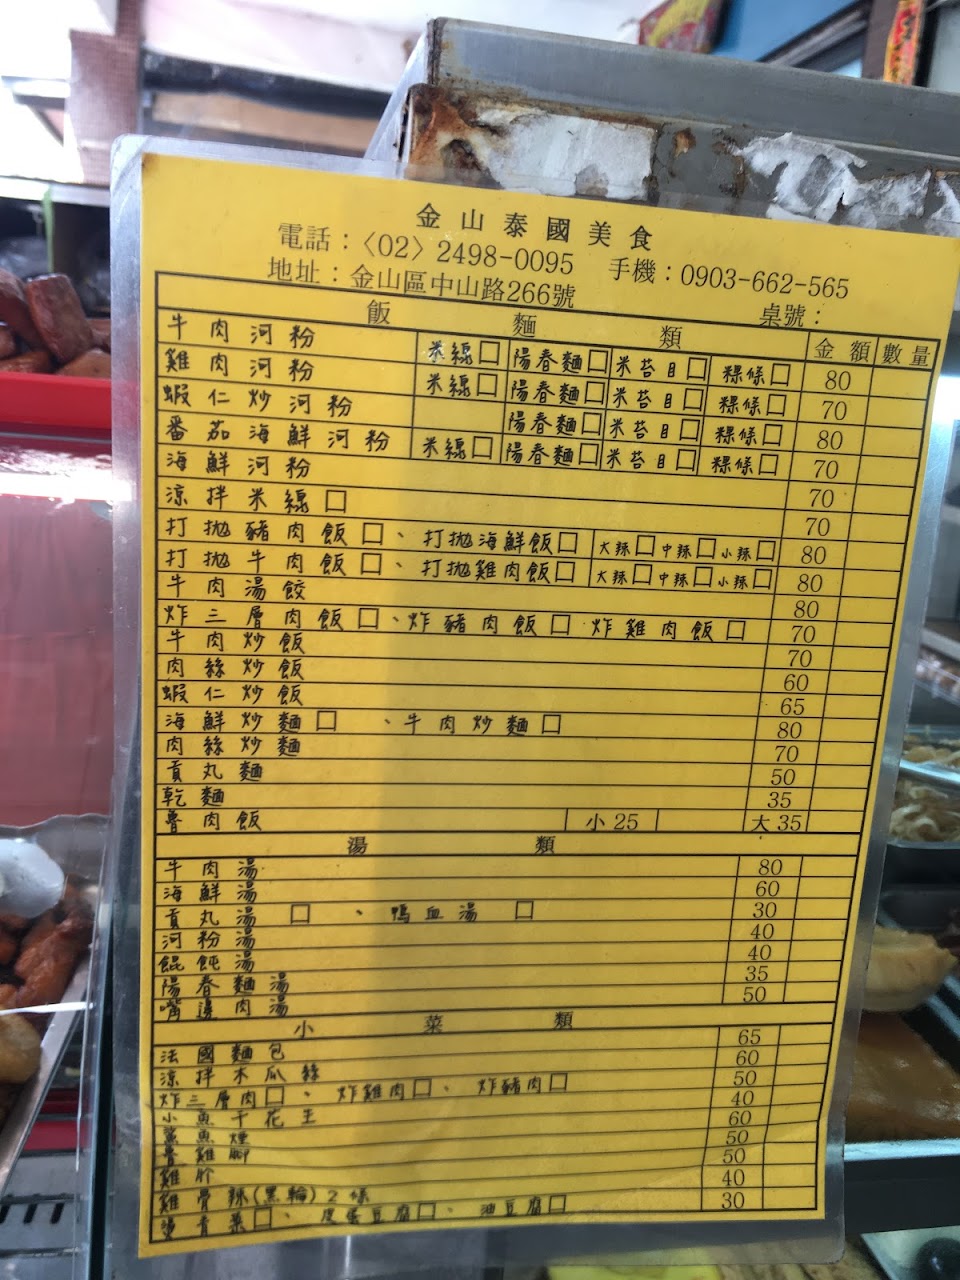 金山泰國美食
電話：〈02〉2498-0095 手機：0903-662-565
地址：金山區中山路266號 桌號：
飯 麵 類 金額 數量
牛肉河粉 米線□ 陽春麵□ 米苔目□ 粿條□ 80
雞肉河粉 米線□ 陽春麵□ 米苔目□ 粿條□ 70
蝦仁炒河粉 陽春麵□ 米苔目□ 粿條□ 80
番茄海鮮河粉 米線□ 陽春麵□ 米苔目□ 粿條□ 70
海鮮河粉 70
涼拌米線□ 70
打拋豬肉飯□、打拋海鮮飯□ 大辣□中辣□小辣□ 80
打拋牛肉飯□、打拋雞肉飯□ 大辣□中辣□小辣□ 80
牛肉湯餃 80
炸三層肉飯□、炸豬肉飯□ 炸雞肉飯□ 70
牛肉炒飯 70
肉絲炒飯 60
蝦仁炒飯 65
海鮮炒麵□、牛肉炒麵□ 80
肉絲炒麵 70
貢丸麵 50
乾麵 35
魯肉飯 小25 大35
湯 類
牛肉湯 80
海鮮湯 60
貢丸湯□、鴨血湯□ 30
河粉湯 40
餛飩湯 40
陽春麵湯 35
嘴邊肉湯 50
小 菜 類
法國麵包 65
涼拌木瓜絲 60
炸三層肉□、炸雞肉□、炸豬肉□ 50
小魚干花生 40
鯊魚煙 60
魯雞腳 50
雞胗 50
雞骨辣(黑輪)2條 40
燙青菜□、皮蛋豆腐□、油豆腐□ 30